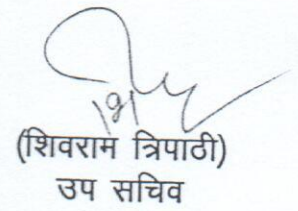 (शिवराम त्रिपाठी)
उप सचिव